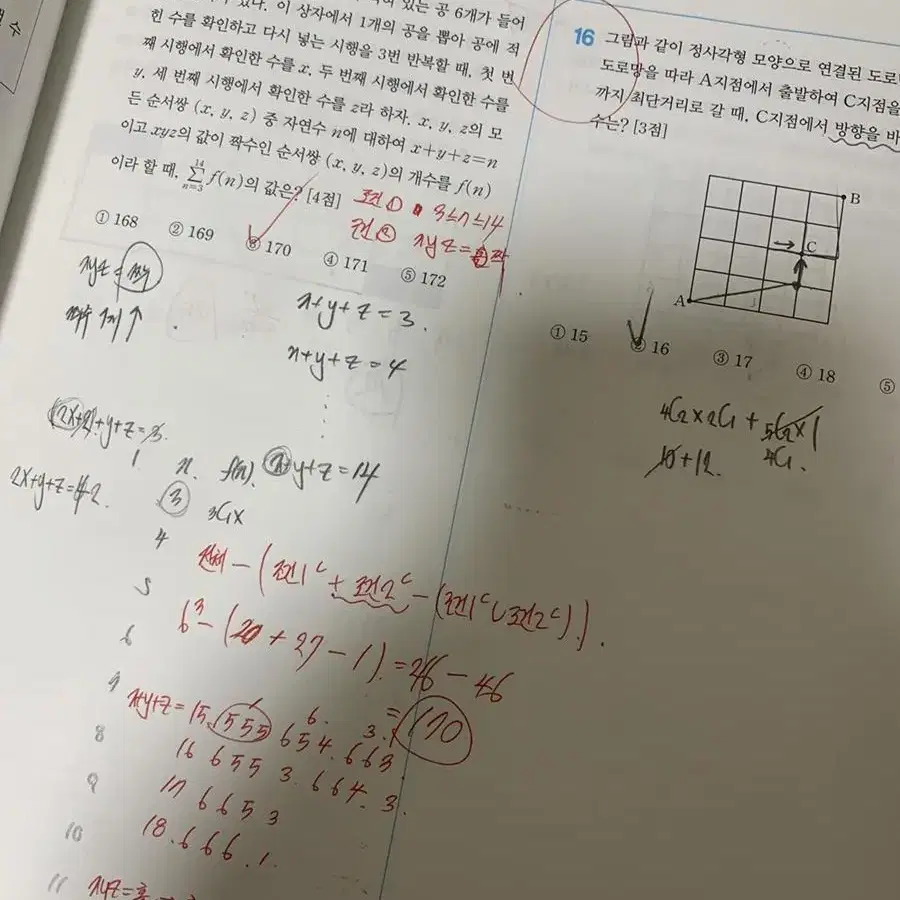 수
이 상자에서 1개의 공을 뽑아 공에 적
있는 공 6개가 들어
힌 수를 확인하고 다시 넣는 시행을 3번 반복할 때, 첫 번
째 시행에서 확인한 수를 x, 두 번째 시행에서 확인한 수를
y, 세 번째 시행에서 확인한 수를 z라 하자. x, y, z의 모
든 순서쌍 (x, y, z) 중 자연수 n에 대하여 x+y+z=n
이고 xyz의 값이 짝수인 순서쌍 (x, y, z)의 개수를 f(n)
이라 할 때, ∑ n=3 14 f(n)의 값은? [4점]
조건① 3≤n≤14
조건② xyz=짝
① 168 ② 169 ③ 170 ④ 171 ⑤ 172
xyz = 짝수
짝수 1개↑
x+y+z=3.
x+y+z=4
(2x+2)+y+z=3.
1
2x+y+z=4-2.
n. f(n). x+y+z=14
3 3C1x
4
전체 - (조건1ᶜ + 조건2ᶜ - (조건1ᶜ∪조건2ᶜ)).
5
6³-(20+27-1)=216-46
6
=170
7
x+y+z=15. 555 654. 663
1 6. 3.
8
16 655 3. 664. 3.
9
17 665 3
10
18. 666. 1.
11
xyz=홀
16 그림과 같이 정사각형 모양으로 연결된 도로
도로망을 따라 A지점에서 출발하여 C지점을
까지 최단거리로 갈 때, C지점에서 방향을 바
수는? [3점]
B
C
A
① 15 ② 16 ③ 17 ④ 18 ⑤
4C2×2C1+5C2×1
4C1.
10+12.